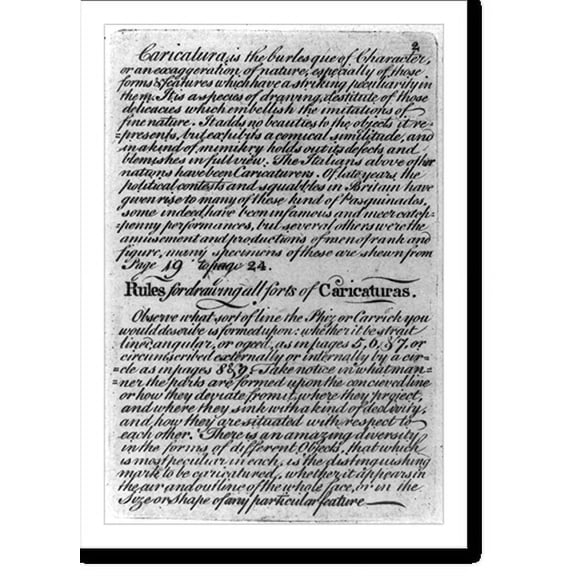 2
Caricatura, is the burlesque of Character,
or an exaggeration of nature, especially of those
forms & features which have a striking peculiarity in
them. It is a species of drawing, destitute of those
delicacies which embellish the imitations of
fine nature. It adds no beauties to the objects it re=
=presents, but exhibits a comical similitude, and
in a kind of mimikry holds out its defects and
blemishes in full view. The Italians above other
nations have been Caricaturers. Of late years, the
political contests and squabbles in Britain have
given rise to many of these kind of Pasquinades,
some indeed have been infamous and meer catch-
-penny performances, but several others were the
amusement and productions of men of rank and
figure, many specimens of these are shewn from
Page 19 to page 24.
Rules for drawing all sorts of Caricaturas.
Observe what sort of line the Phiz or Carrick you
would describe is formed upon: whether it be strait
lined, angular, or ogeed, as in pages 5, 6, & 7, or
circumscribed externally or internally by a cir=
=cle as in pages 8 & 9. Take notice in what man=
=ner the parts are formed upon the concieved line
or how they deviate from it, where they project,
and where they sink with a kind of declivity,
and how they are situated with respect to
each other. There is an amazing diversity
in the forms of different Objects, that which
is most peculiar in each, is the distinguishing
mark to be caricatured, whether it appears in
the air and outline of the whole face, or in the
Size or Shape of any particular feature